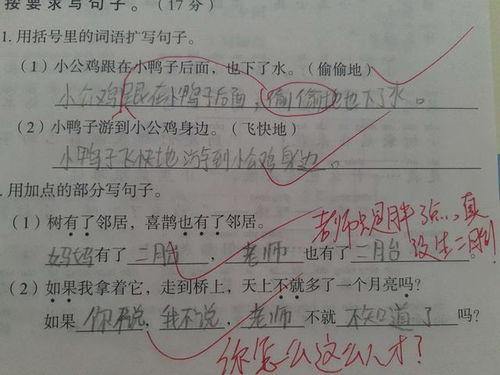 按要求写句子。(17分)
1. 用括号里的词语扩写句子。
(1)小公鸡跟在小鸭子后面,也下了水。(偷偷地)
小公鸡跟在小鸭子后面,偷偷地也下了水。
(2)小鸭子游到小公鸡身边。(飞快地)
小鸭子飞快地游到小公鸡身边。
. 用加点的部分写句子。
(1)树有了邻居,喜鹊也有了邻居。
妈妈有了二胎,老师也有了二胎。
老师只是胖了点...真没生二胎!
(2)如果我拿着它,走到桥上,天上不就多了一个月亮吗?
如果你不说,我不说,老师不就不知道了吗?
你怎么这么人才?